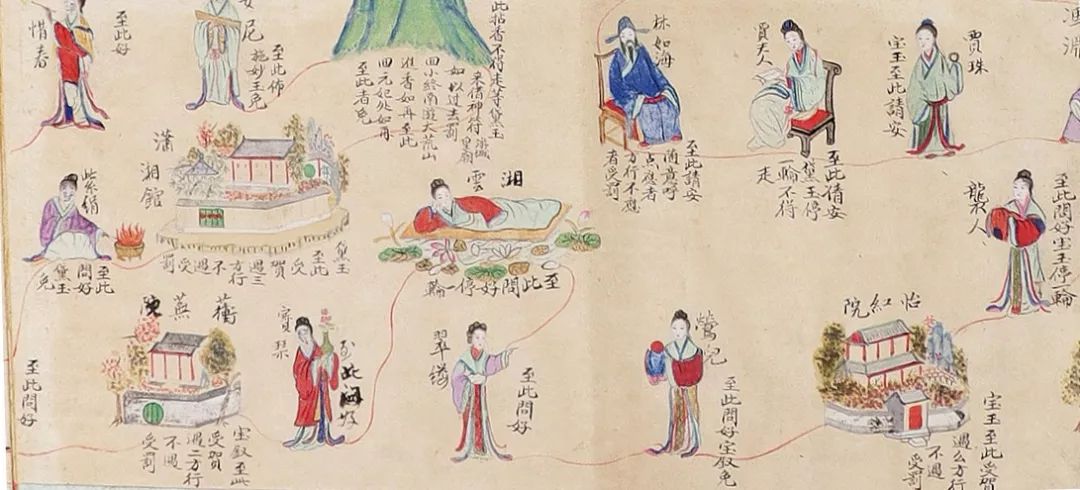 惜春
至此好
尼
至此佈
施妙玉免
此拈香不得走等黛玉
來借神符
如以過去罰
回小終南遊大荒山
進香如再至此
回元妃处如再
至此者免
林如海
至此請安
点應者
方行不應
者受罰
賈夫人
至此请安
黛玉停
一輪不得
走
賈珠
宝玉至此請安
瀟湘館
黛玉
至此
受賀
過三
方行
不過
受罰
紫絹
至此
問好
黛玉
免
湘雲
至此問好停一輪
襲人
至此問好宝玉停一輪
至此問好
蘅蕪院
宝釵至此
受賀
過二方行
不過
受罰
寶琴
至此問好
翠縷
至此問好
鶯児
至此問好宝釵免
怡紅院
宝玉至此受賀
過么方行
不過
受罰